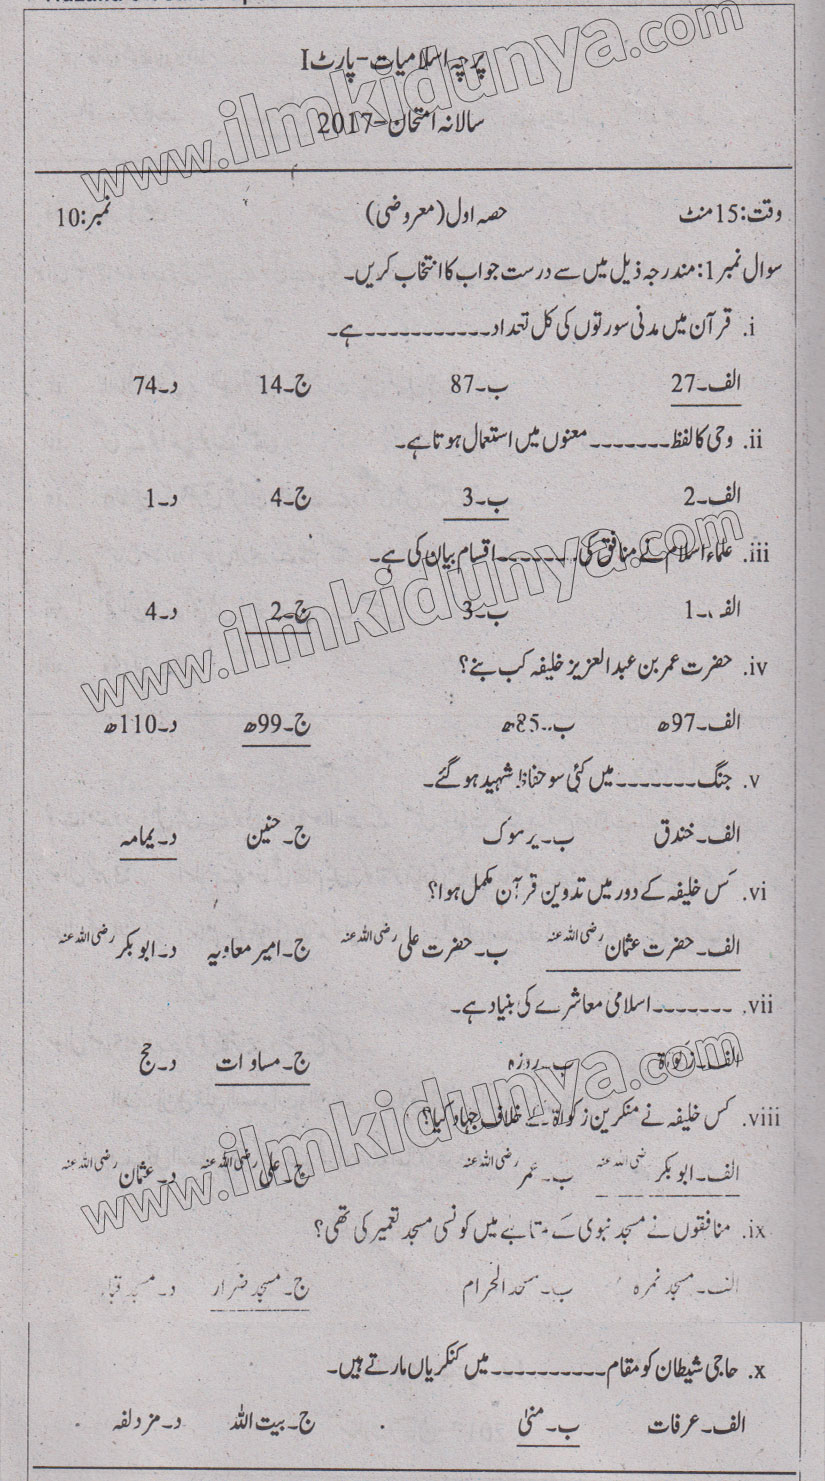 پرچہ اسلامیات-پارٹ I
سالانہ امتحان-2017
وقت:15منٹ حصہ اول(معروضی) نمبر:10
سوال نمبر1:مندرجہ ذیل میں سے درست جواب کا انتخاب کریں۔
i. قرآن میں مدنی سورتوں کی کل تعداد۔۔۔۔۔۔۔۔۔۔۔ہے۔
الف۔27 ب۔87 ج۔14 د۔74
ii. وحی کا لفظ۔۔۔۔۔۔۔معنوں میں استعمال ہوتا ہے۔
الف۔2 ب۔3 ج۔4 د۔1
iii. علماء اسلام نے منافق کی۔۔۔۔۔۔۔اقسام بیان کی ہے۔
الف۔1 ب۔3 ج۔2 د۔4
iv. حضرت عمر بن عبدالعزیز خلیفہ کب بنے؟
الف۔97ھ ب۔85ھ ج۔99ھ د۔110ھ
v. جنگ۔۔۔۔۔۔۔میں کئی سو حفاظ شہید ہو گئے۔
الف۔خندق ب۔یرموک ج۔حنین د۔یمامہ
vi. کس خلیفہ کے دور میں تدوین قرآن مکمل ہوا؟
الف۔حضرت عثمان رضی اللہ عنہ ب۔حضرت علی رضی اللہ عنہ ج۔امیر معاویہ د۔ابوبکر رضی اللہ عنہ
vii. ۔۔۔۔۔۔۔اسلامی معاشرے کی بنیاد ہے۔
الف۔زکوٰۃ ب۔روزہ ج۔مساوات د۔حج
viii. کس خلیفہ نے منکرین زکوٰۃ کے خلاف جہاد کیا؟
الف۔ابوبکر رضی اللہ عنہ ب۔عمر رضی اللہ عنہ ج۔علی رضی اللہ عنہ د۔عثمان رضی اللہ عنہ
ix. منافقوں نے مسجد نبوی کے مقابے میں کونسی مسجد تعمیر کی تھی؟
الف۔مسجد نمرہ ب۔مسجد الحرام ج۔مسجد ضرار د۔مسجد قباء
x. حاجی شیطان کو مقام۔۔۔۔۔۔۔۔۔۔میں کنکریاں مارتے ہیں۔
الف۔عرفات ب۔منیٰ ج۔بیت اللہ د۔مزدلفہ
www.ilmkidunya.com
www.ilmkidunya.com
www.ilmkidunya.com